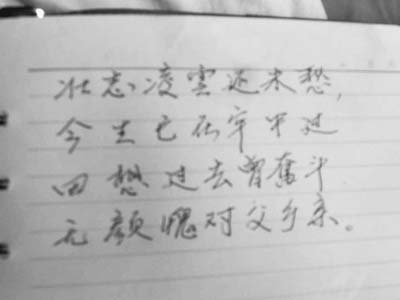 壮志凌雲还未愁,
今生已在牢中过
回想过去曾奋斗
无颜愧对父乡亲。